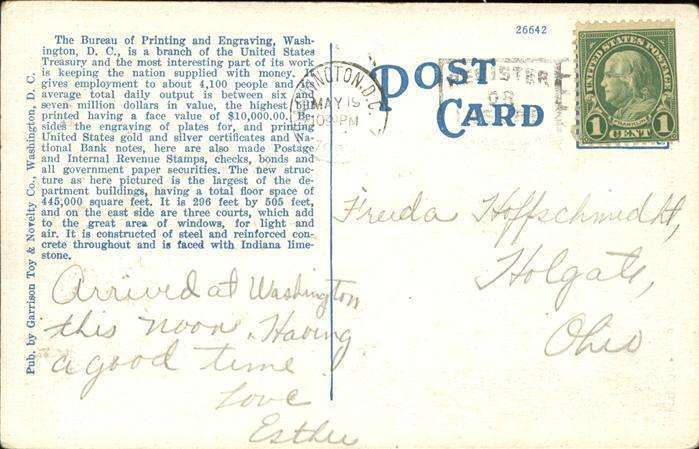 The Bureau of Printing and Engraving, Wash-
ington, D. C., is a branch of the United States
Treasury and the most interesting part of its work
is keeping the nation supplied with money. It
gives employment to about 4,100 people and its
average total daily output is between six and
seven million dollars in value, the highest
printed having a face value of $10,000.00. Be-
sides the engraving of plates for, and printing
United States gold and silver certificates and Na-
tional Bank notes, here are also made Postage
and Internal Revenue Stamps, checks, bonds and
all government paper securities. The new struc-
ture as here pictured is the largest of the de-
partment buildings, having a total floor space of
445,000 square feet. It is 296 feet by 505 feet,
and on the east side are three courts, which add
to the great area of windows, for light and
air. It is constructed of steel and reinforced con-
crete throughout and is faced with Indiana lime-
stone.
Pub. by Garrison Toy & Novelty Co., Washington, D. C.
Arrived at Washington
this noon. Having
a good time
Love
Esther
26642
POST
CARD
INGTON, D.C.
MAY 15
PM
REGISTER
OR
UNITED STATES POSTAGE
FRANKLIN
1 1
CENT
Freida Hoffschmidt,
Holgate,
Ohio